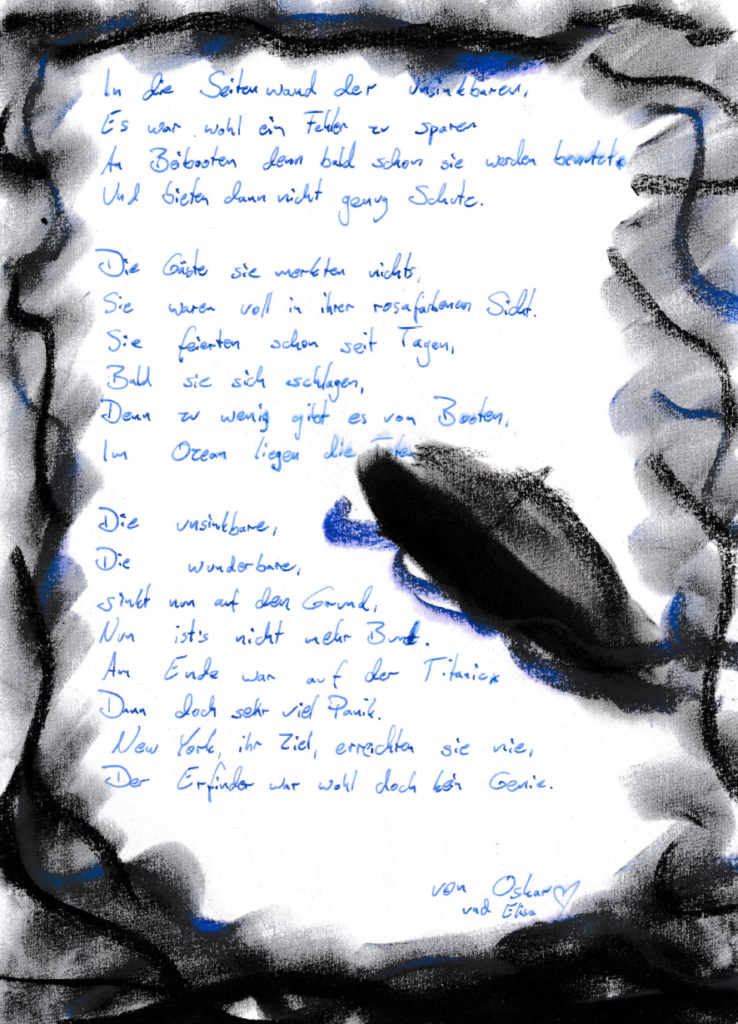 In die Seitenwand der unsinkbaren,
Es war wohl ein Fehler zu sparen
An Beibooten denn bald schon sie werden benutzt,
Und bieten dann nicht genug Schutz.
Die Gäste sie merkten nichts,
Sie waren voll in ihrer rosafarbenen Sicht.
Sie feierten schon seit Tagen,
Bald sie sich schlagen,
Denn zu wenig gibt es von Booten,
Im Ozean liegen die Toten
Die unsinkbare,
Die wunderbare,
sinkt nun auf den Grund,
Nun ist's nicht mehr Bunt.
Am Ende war auf der Titanic,
Dann doch sehr viel Panik.
New York, ihr Ziel, erreichten sie nie,
Der Erfinder war wohl doch kein Genie.
von Oskar
und Elisa